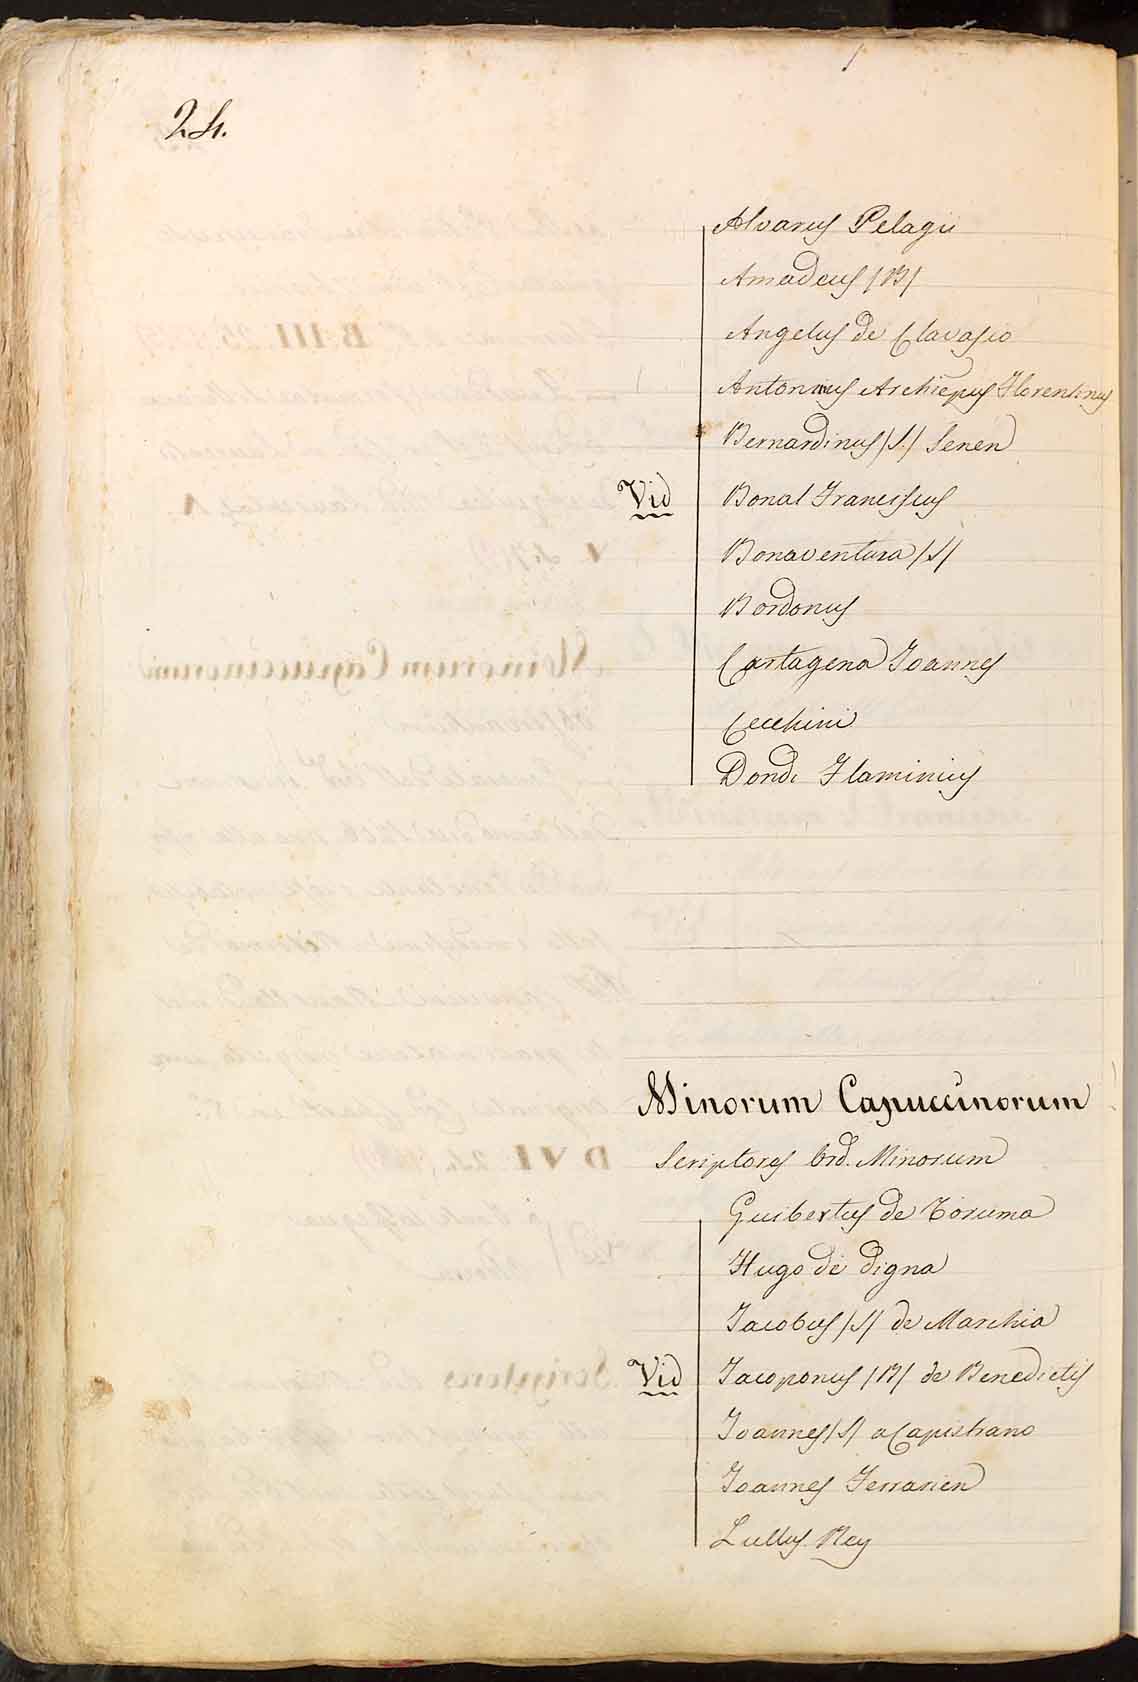 24.
Alvarus Pelagii
Amadeus /B/
Angelus de Clavasio
Antonius Archiepus Florentinus
Bernardinus /S./ Senen
Vid Bonal Franciscus
Bonaventura /S/
Bordonus
Cartagena Joannes
Cecchini
Dondi Flaminius
Minorum Capuccinorum
Scriptores Ord. Minorum
Guibertus de Toruma
Hugo de Digna
Jacobus /S/ de Marchia
Vid Jacoponus /B/ de Benedictis
Joannes /S/ a Capistrano
Joannes Ferrarien
Lullus Rey